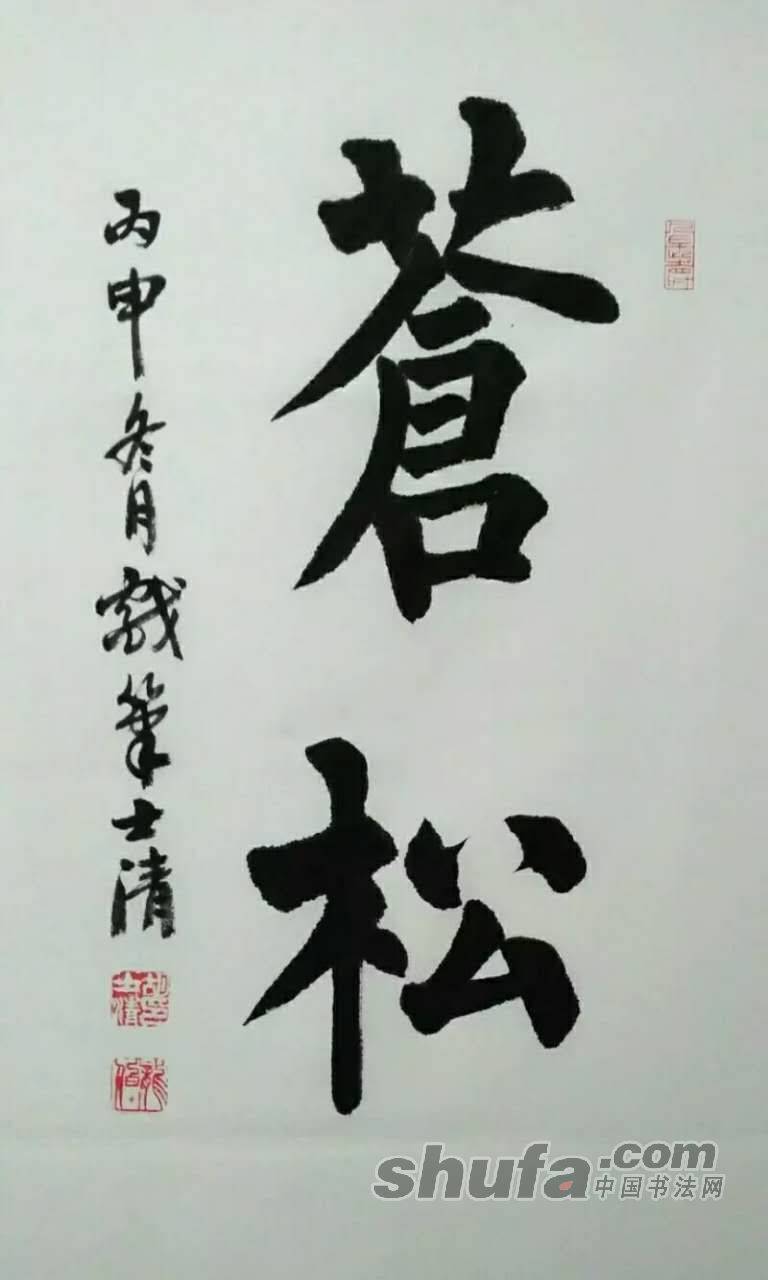 蒼松
丙申冬月戲筆士清
shufa.com
中国书法网